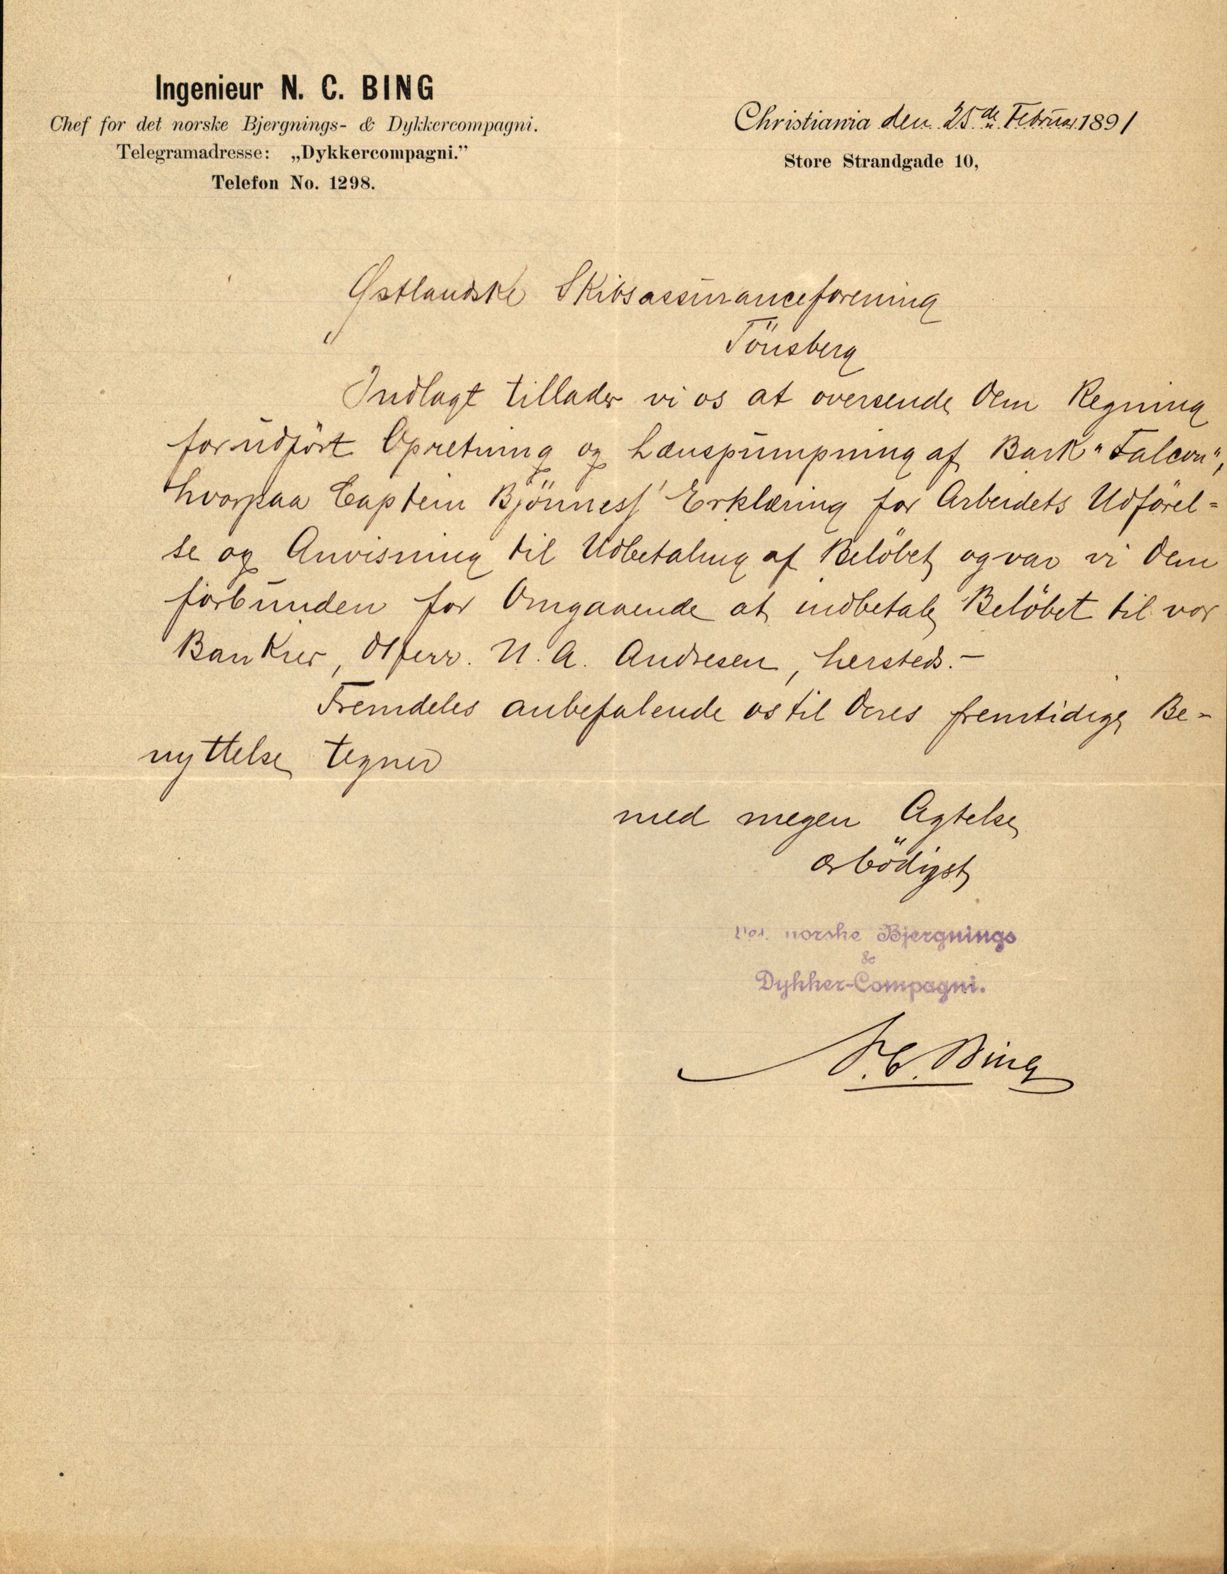 Ingenieur N. C. BING
Chef for det norske Bjergnings- & Dykkercompagni.
Telegramadresse: „Dykkercompagni.”
Telefon No. 1298.
Christiania den 25de Februar 1891
Store Strandgade 10,
Østlandske Skibsassuranceforening
Tönsberg
Indlagt tillader vi os at oversende Dem Regning
for udfört Opretning og Lænspumpning af Bark "Falcon",
hvorpaa Captein Bjönness' Erklæring for Arbeidets Udförel-
se og Anvisning til Udbetaling af Belöbet, og var vi Dem
forbunden for Omgaaende at indbetale Belöbet til vor
Bankier, N. A. Andresen, hersteds.-
Fremdeles anbefalende os til Deres fremtidige Be-
nyttelse tegner
med megen Agtelse
ærbödigst
Det norske Bjergnings
&
Dykker-Compagni.
N. C. Bing